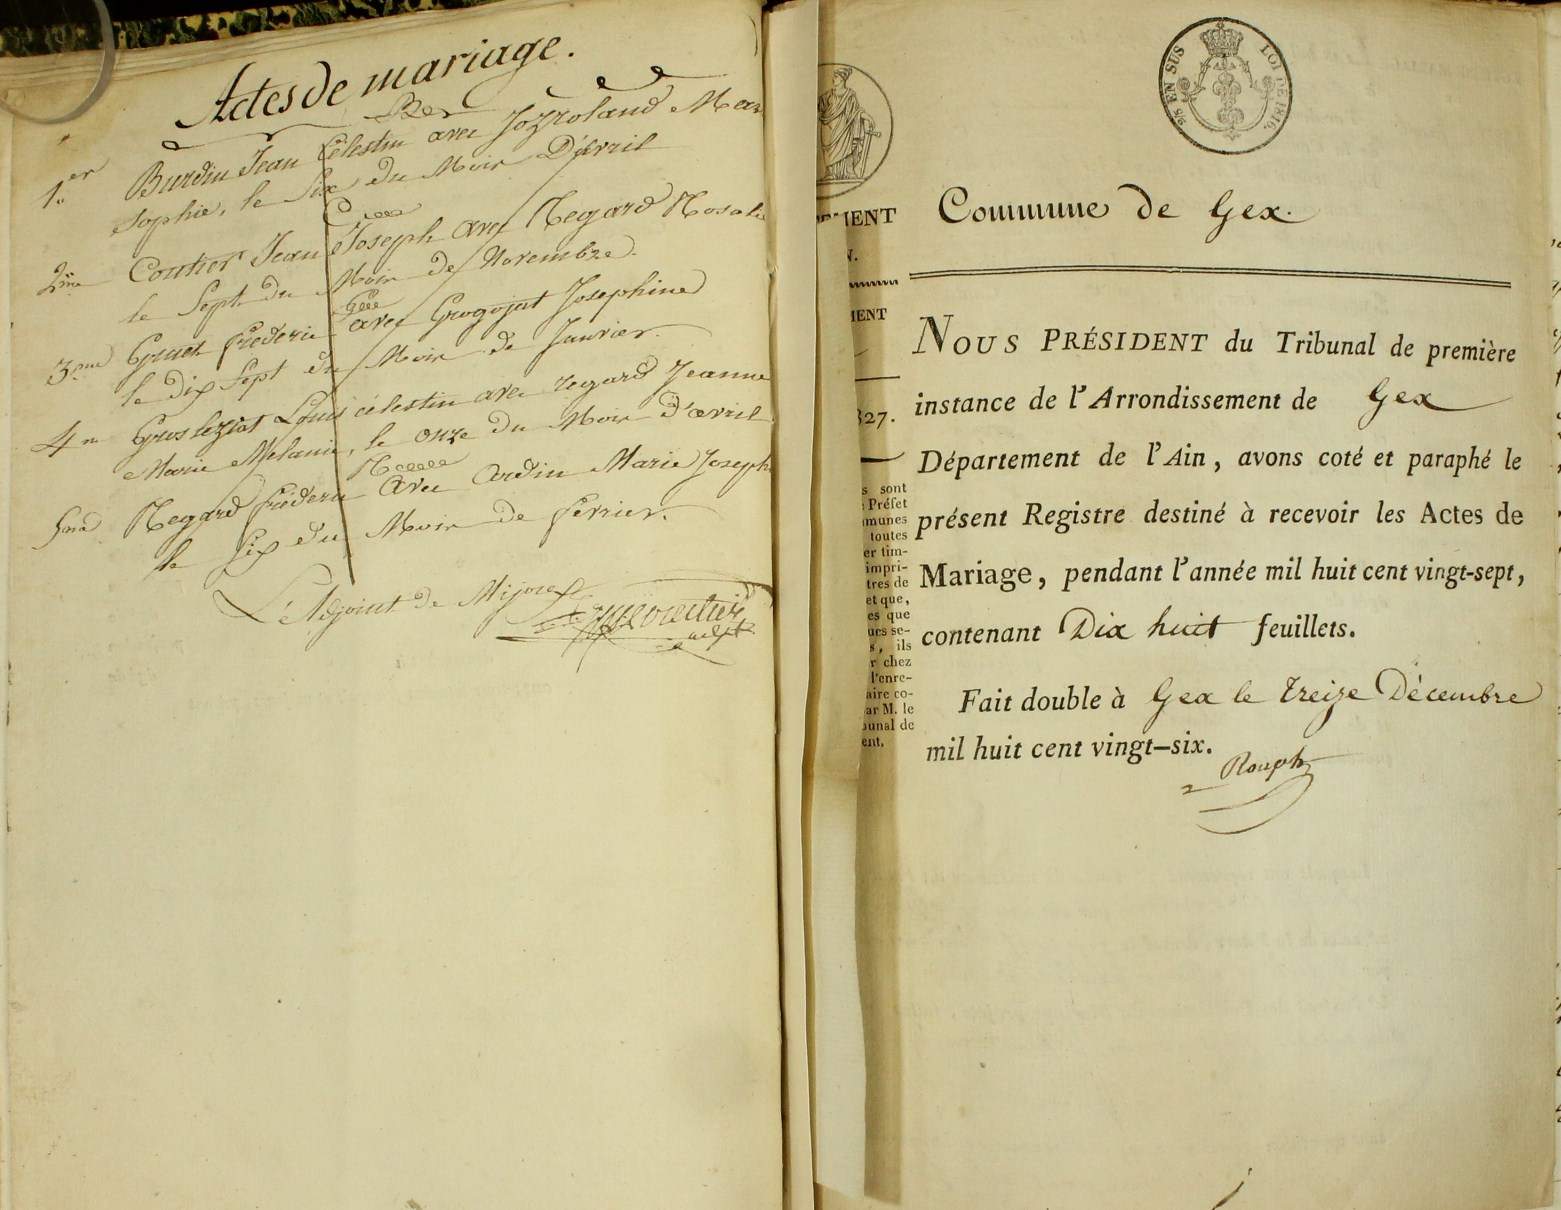 Actes de mariage.
B
1.er Burdin Jean Célestin avec Jozroland Mar
Sophie, le Six du Mois D'avril
C
2.me Coutier Jean Joseph avec Regard Rosalie
le Sept du Mois de Novembre.
G
3.me Grnet frédéric avec Grogojat Josephine
le dix Sept du Mois de Janvier.
4.m Groslezjat Louis célestin avec regard Jeanne
Marie Melanie, le onze du Mois d'avril
R
5.me Regard frédéric avec Ardin Marie Joseph
le Six du Mois de fevrier.
L'Adjoint de Mijoux
adjt
25 EN SUS
LOI DE 1816.
MENT
N.
MENT
827.
s sont
Préfet
munes
toutes
er tim-
impri-
tres de
et que,
es que
urs se-
s, ils
r chez
l'enre-
aire co-
ar M. le
bunal de
ent.
Commune de Gex.
NOUS PRÉSIDENT du Tribunal de première
instance de l'Arrondissement de Gex
Département de l'Ain, avons coté et paraphé le
présent Registre destiné à recevoir les Actes de
Mariage, pendant l'année mil huit cent vingt-sept,
contenant Dix huit feuillets.
Fait double à Gex le treize Décembre
mil huit cent vingt-six.
Rouph